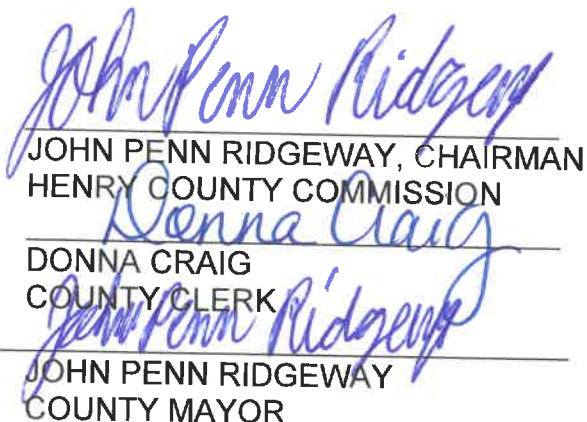 John Penn Ridgeway
JOHN PENN RIDGEWAY, CHAIRMAN
HENRY COUNTY COMMISSION
Donna Craig
DONNA CRAIG
COUNTY CLERK
John Penn Ridgeway
JOHN PENN RIDGEWAY
COUNTY MAYOR